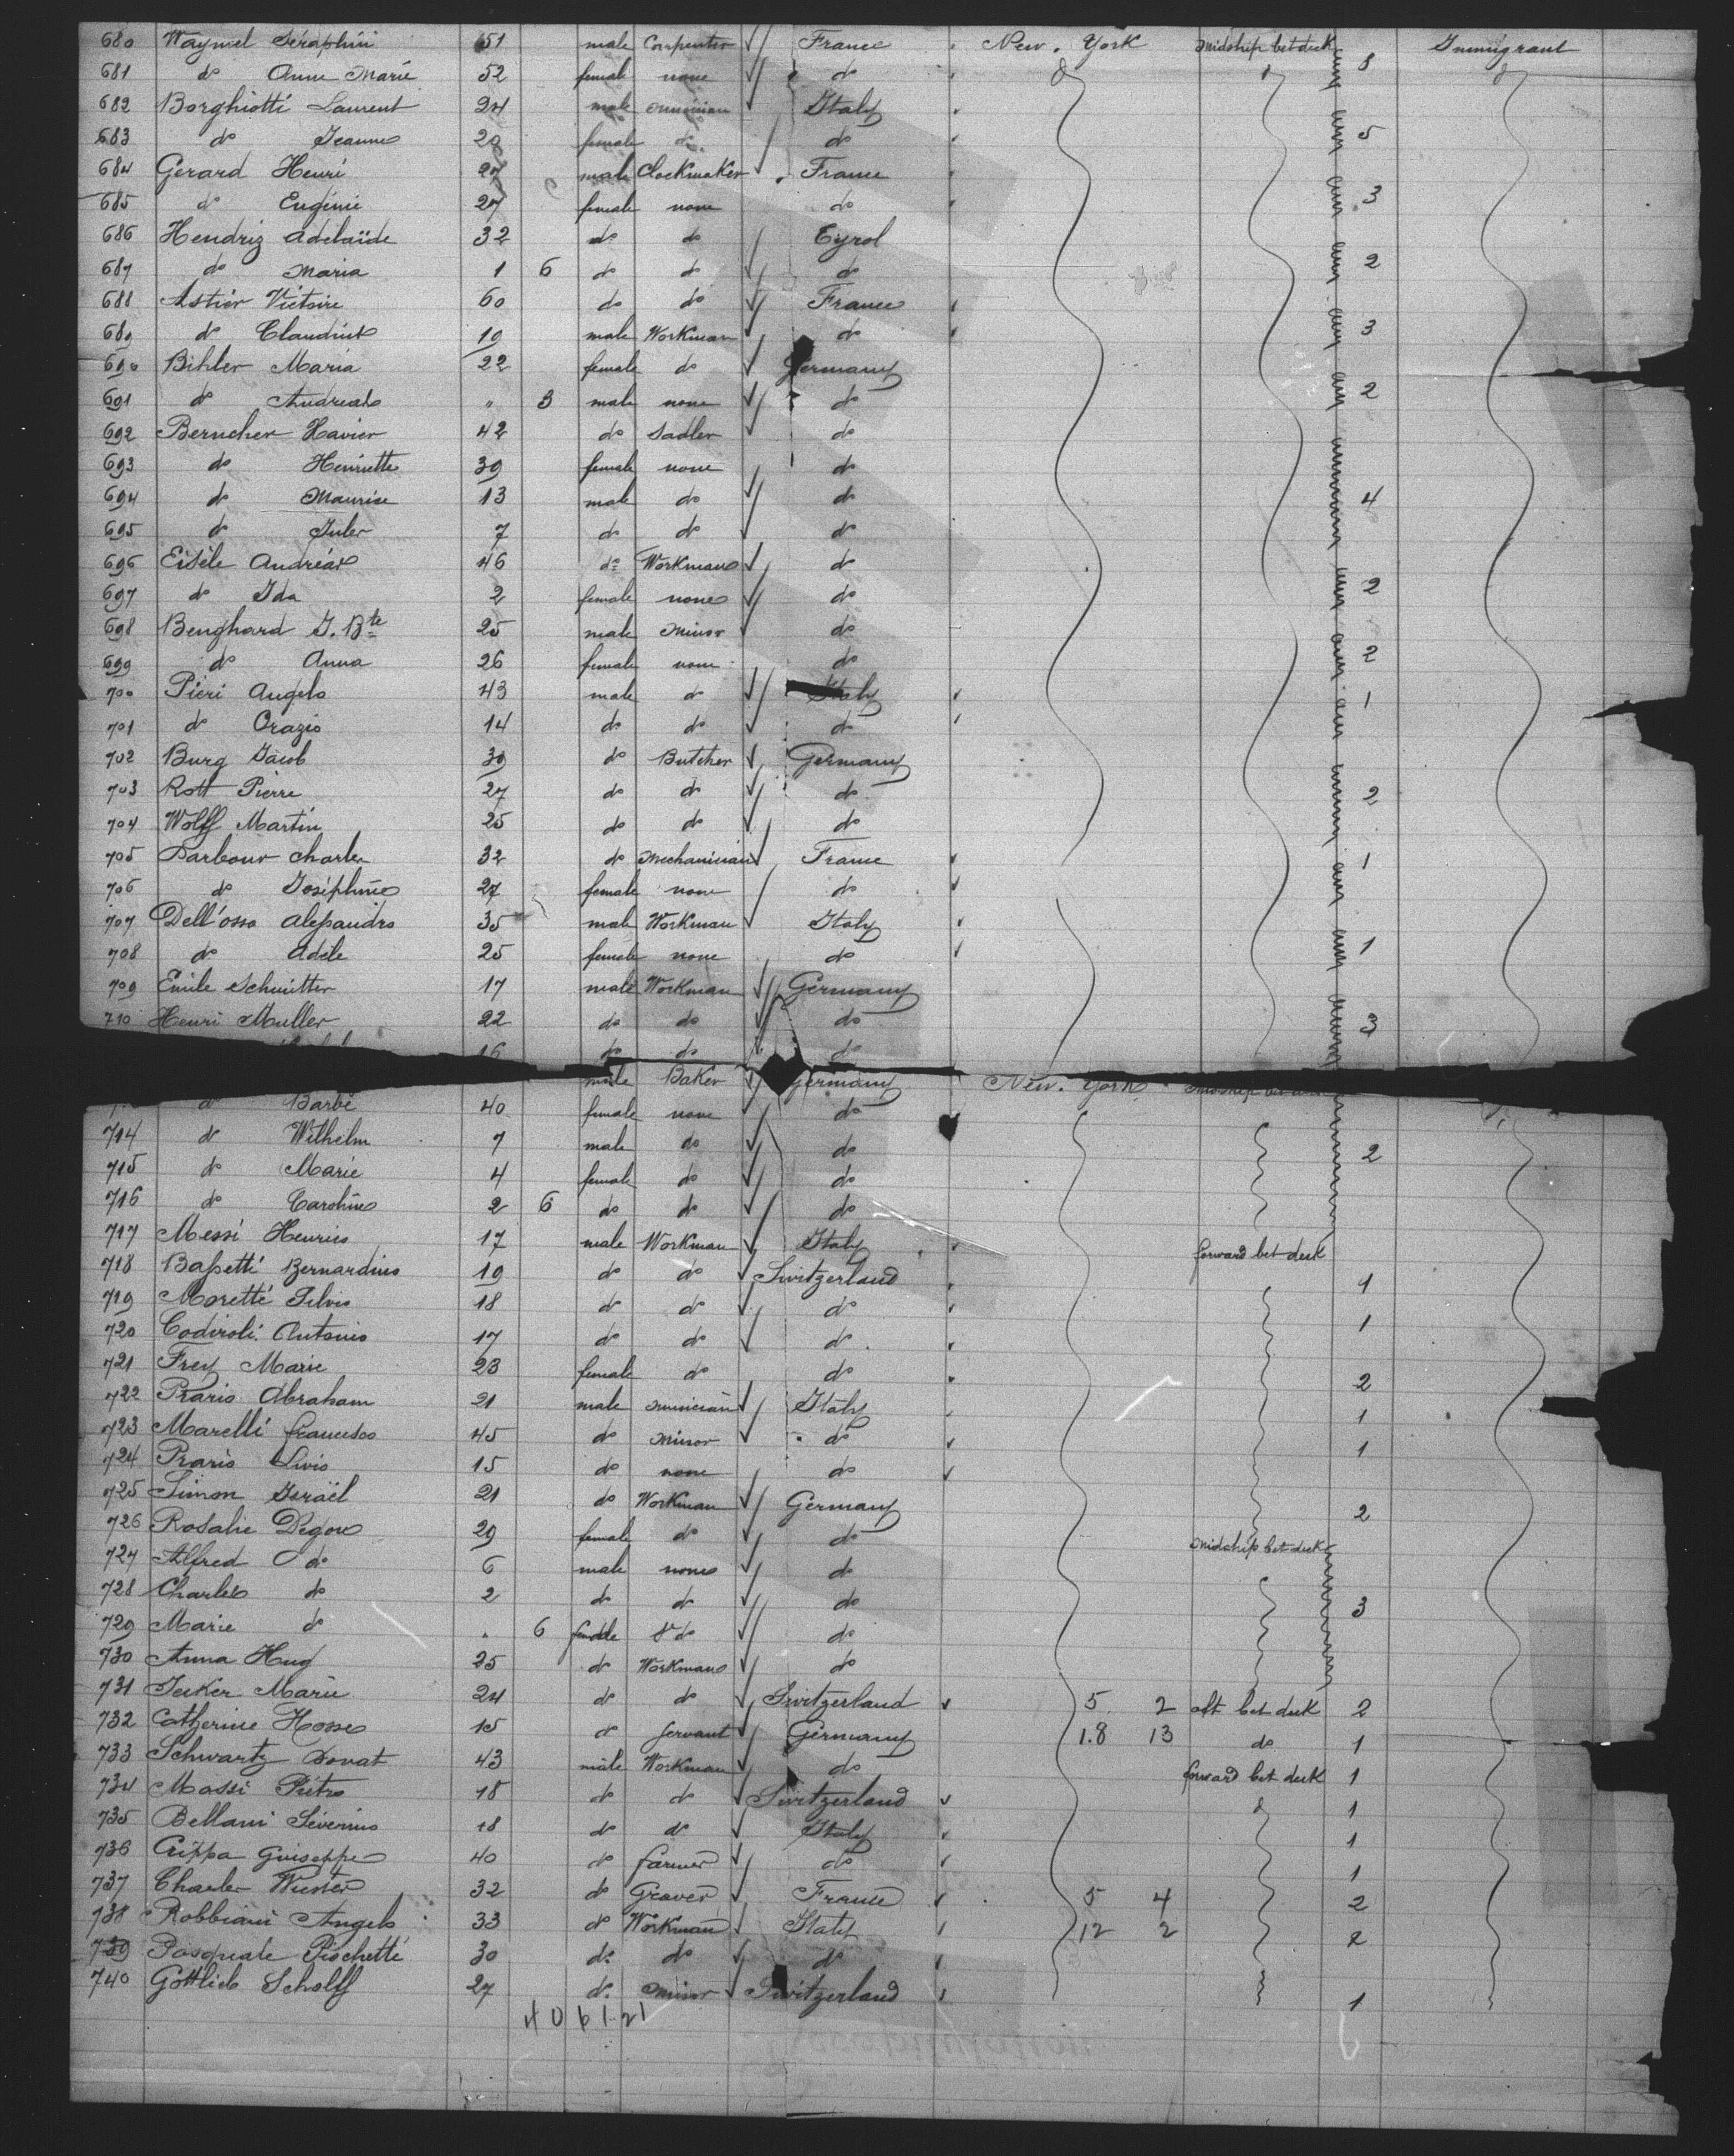 680 Waymel Séraphin 51 male Carpenter France New. York midship bet deck 8 Immigrant
681 do Anne Marie 52 female none do
682 Borghiotti Laurent 24 male Italy
683 do Jeanne 20 female do do 5
684 Gerard Henri 27 male Clockmaker France
685 do Eugénie 27 female none do 3
686 Hendriz Adelaïde 32 do do Tyrol
687 do Maria 1 6 do do do 2
688 Astier Victoire 60 do do France
689 do Claudius 19 male Workman do 3
690 Bihler Maria 22 female do Germany
691 do Andreas " 3 male none do 2
692 Berncher Xavier 42 do Sadler do
693 do Henriette 39 female none do
694 do Maurice 13 male do do 4
695 do Jules 7 do do do
696 Eisèle Andréas 46 do Workman do
697 do Ida 2 female none do 2
698 Benghard J. Bte 25 male minor do
699 do Anna 26 female none do 2
700 Piéri Angelo 43 male do Italy 1
701 do Orazio 14 do do do
702 Burg Jacob 39 do Butcher Germany
703 Rott Pierre 27 do do do 2
704 Wolff Martin 25 do do do
705 Barbour Charles 32 do Mechanician France 1
706 do Joséphine 27 female none do
707 Dell'osso Alessandro 35 male Workman Italy
708 do Adèle 25 female none do 1
709 Emile Schmitter 17 male Workman Germany
710 Henri Muller 22 do do do 3
16 do do do
male Baker Germany New. York midship bet deck
do Barbe 40 female none do
714 do Wilhelm 7 male do do 2
715 do Marie 4 female do do
716 do Caroline 2 6 do do do
717 Messi Henrico 17 male Workman Italy forward bet deck
718 Bassetti Bernardino 19 do do Switzerland 1
719 Moretti Silvio 18 do do do 1
720 Codiroli Antonio 17 do do do
721 Frey Marie 23 female do do 2
722 Prario Abraham 21 male Italy 1
723 Marelli francesco 45 do minor do 1
724 Prario Livio 15 do none do
725 Simon Israël 21 do Workman Germany 2
726 Rosalie Degou 29 female do do midship bet deck
727 Alfred do 6 male none do
728 Charles do 2 do do do 3
729 Marie do " 6 female do do
730 Anna Hug 25 do Workman do
731 Jecker Marie 24 do do Switzerland 5 2 aft bet deck 2
732 Catherine Hosse 15 do servant Germany 1.8 13 do 1
733 Schwartz Donat 43 male Workman do forward bet deck 1
734 Massi Pietro 18 do do Switzerland 1
735 Bellani Séverino 18 do do Italy 1
736 Crippa Guiseppe 40 do farmer do 1
737 Charles Wuster 32 do Graver France 5 4 2
738 Robbiani Angelo 33 do Workman Italy 12 2 2
739 Pasquale Pischetti 30 do do do
740 Gottlieb Scholff 27 do minor Switzerland 1